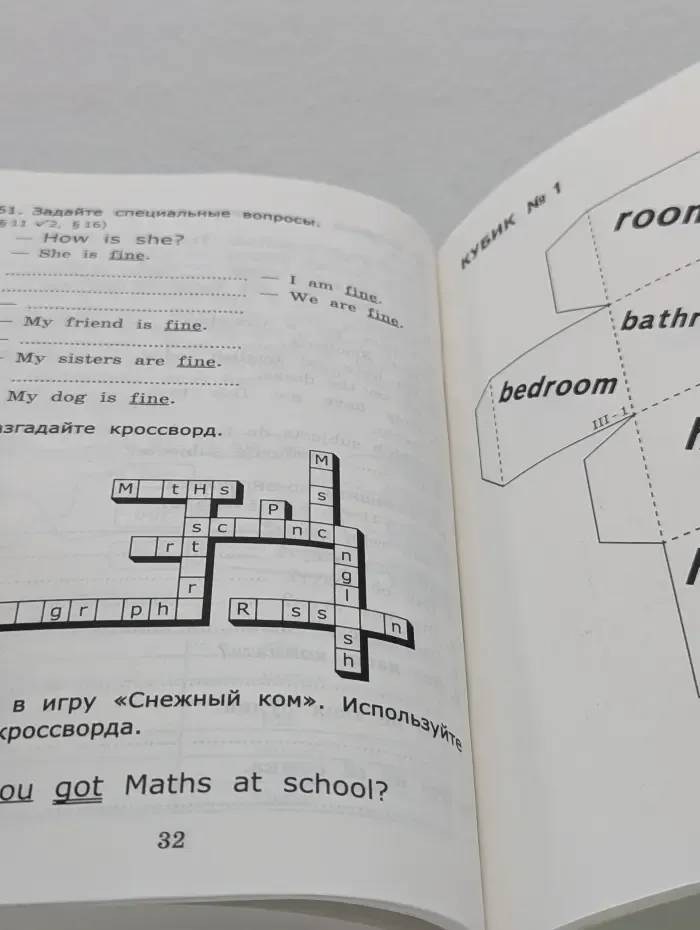 51. Задайте специальные вопросы.
§ 11 ✓2, § 16)
— How is she?
— She is fine.
— I am fine.
— We are fine.
— My friend is fine.
— My sisters are fine.
My dog is fine.
азгадайте кроссворд.
M
M t H s
s
P
s c n c
r t
n
g
r
l
g r p h
R s s n
s
h
в игру «Снежный ком». Используйте
кроссворда.
ou got Maths at school?
32
КУБИК № 1
room
bathr
bedroom
III-1